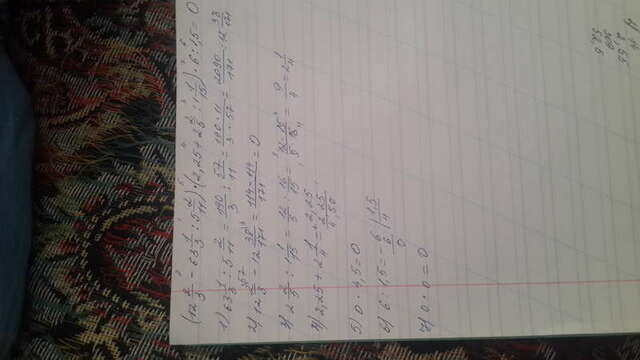 (12 2/3 - 63 1/3 : 5 2/11) · (2,25 + 2 2/5 : 1 1/15) · 6 : 1,5 = 0
1) 63 1/3 : 5 2/11 = 190/3 : 57/11 = 190·11/3·57 = 2090/171 = 12 38/171
2) 12 2/3 - 12 38/171 = 114-114/171 = 0
3) 2 2/5 : 1 1/15 = 12/5 : 16/15 = 12·15/5·16 = 9/4 = 2 1/4
4) 2,25 + 2 1/4 = + 2,25
2 25
4,50
5) 0 · 4,5 = 0
6) 6 : 1,5 = - 6 | 1,5
6 4
0
7) 0 · 0 = 0